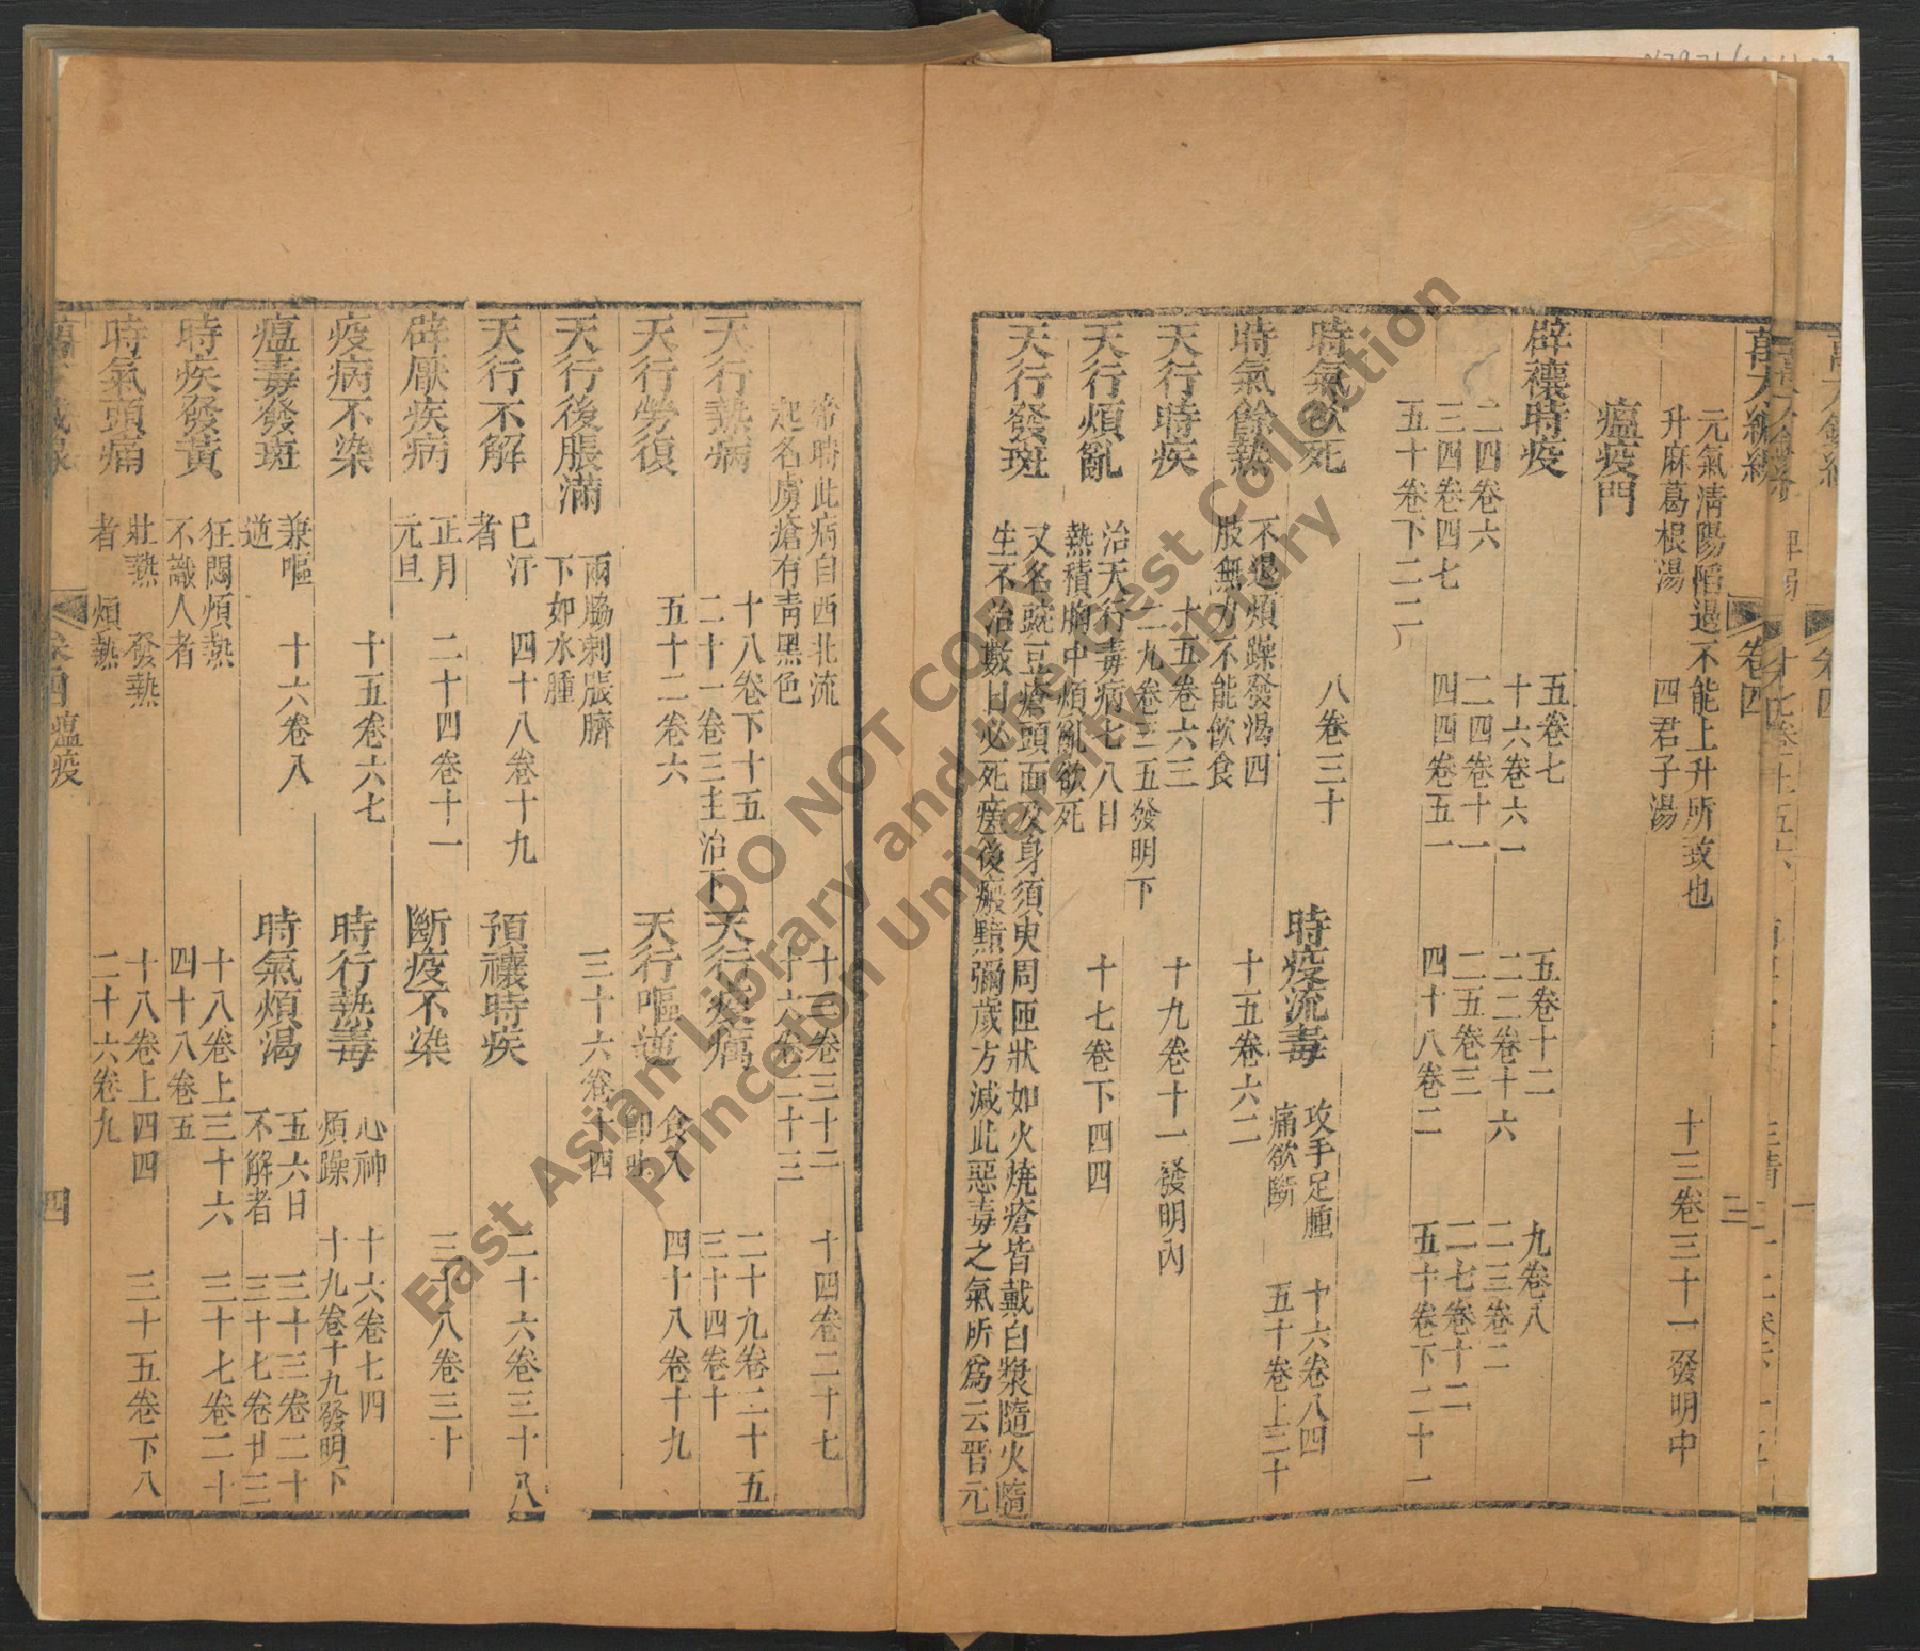 元氣清陽陷遏不能上升所致也
升麻葛根湯 四君子湯 十三卷三十一發明中
瘟疫門
辟禳時疫 五卷七 五卷十二 九卷八
十六卷六一 二二卷十六 二三卷二
二四卷六 二四卷十一 二五卷三 二七卷十二
三四卷四七 四四卷五一 四十八卷二 五十卷下二十一
五十卷下二二
時氣欲死 八卷三十 時疫流毒 攻手足腫痛欲斷 十六卷八四 五十卷上三十
時氣餘熱 不退煩躁發渴四肢無力不能飲食 十五卷六二
天行時疾 十五卷六三 十九卷十一發明內
二九卷三五發明下
天行煩亂 治天行毒病七八日熱積胸中煩亂欲死 十七卷下四四
天行發斑 又名豌豆瘡頭面及身須臾周匝狀如火燒瘡皆戴白漿隨火隨
生不治數日必死瘥後瘢黯彌歲方滅此惡毒之氣所為云晉元
帝時此病自西北流 十三卷三十二 十四卷二十七
起名虜瘡有青黑色 十六卷二十三
天行熱病 十八卷下十五 二十一卷三主治下 天行疫癘 二十九卷二十五 三十四卷十
天行勞復 五十二卷六 天行嘔逆 食入即吐 四十八卷十九
天行後脹滿 兩脇刺脹臍下如水腫 三十六卷十四
天行不解 已汗者 四十八卷十九 預禳時疾 二十六卷三十八
辟厭疾病 正月元旦 二十四卷十一 斷疫不染 三十八卷三十
疫病不染 十五卷六七 時行熱毒 心神煩躁 十六卷七四 十九卷十九發明下
瘟毒發斑 兼嘔逆 十六卷八 時氣煩渴 五六日不解者 三十三卷二十 三十七卷廿三
時疾發黃 狂悶煩熱不識人者 十八卷上三十六 三十七卷二十
四十八卷五
時氣頭痛 壯熱者 發熱 煩熱 十八卷上四四 三十五卷下八
二十六卷九
卷四 瘟疫 四
卷四
East Asian Library and the Gest Collection
Princeton University Library
DO NOT COPY